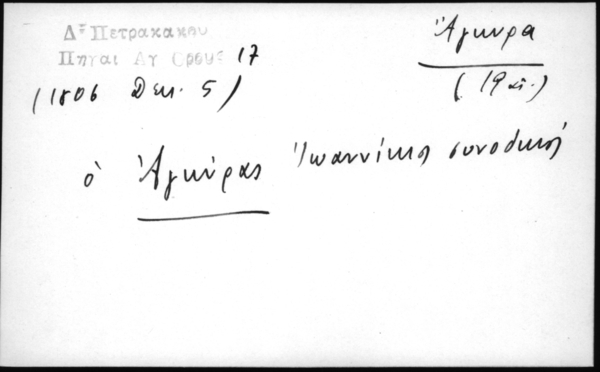 Δ. Πετρακακου
Πηγαι Αγ Ορους 17
(1806 Δεκ. 5)
Ἄγκυρα
(19 αἰ.)
ὁ Ἀγκύρας Ἰωαννίκιος συνοδικός